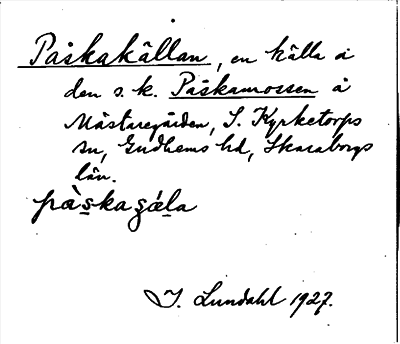 Påskakällan, en källa å
den s. k. Påskamossen å
Mästaregården, S. Kyrketorps
sn, Gudhems hd, Skaraborgs
län.
pàs̲kaʂǽl̲a
I. Lundahl 1927.